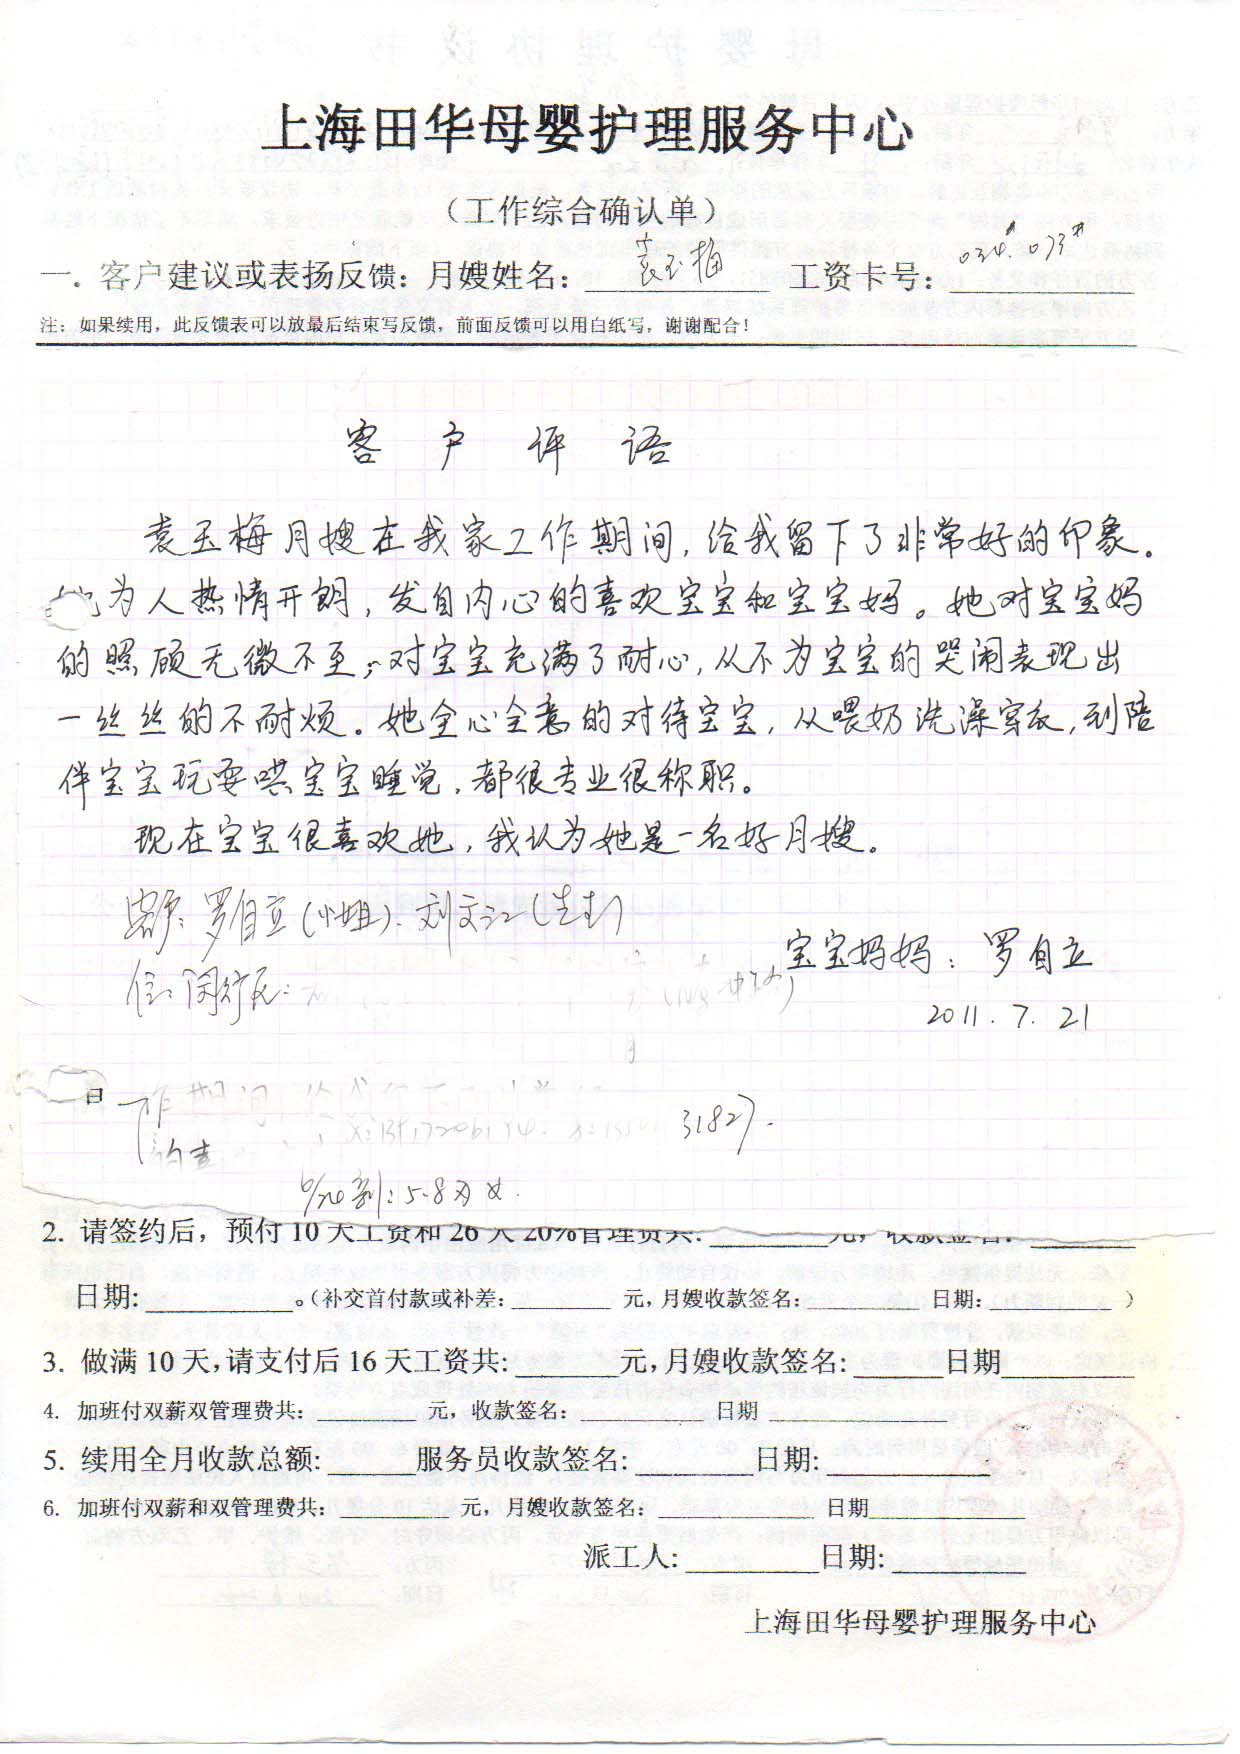 上海田华母婴护理服务中心
（工作综合确认单）
一. 客户建议或表扬反馈：月嫂姓名：袁玉梅 工资卡号：034# 033#
注：如果续用，此反馈表可以放最后结束写反馈，前面反馈可以用白纸写，谢谢配合！
客户评语
袁玉梅月嫂在我家工作期间，给我留下了非常好的印象。
她为人热情开朗，发自内心的喜欢宝宝和宝宝妈。她对宝宝妈
的照顾无微不至；对宝宝充满了耐心，从不为宝宝的哭闹表现出
一丝丝的不耐烦。她全心全意的对待宝宝，从喂奶洗澡穿衣，到陪
伴宝宝玩耍哄宝宝睡觉，都很专业很称职。
现在宝宝很喜欢她，我认为她是一名好月嫂。
客户：罗自立（小姐）、刘文江（先生）
宝宝妈妈：罗自立
住：闵行区：
2011.7.21
日
作期间
31827.
2. 请签约后，预付10天工资和26天20%管理费共：元，收款签名：
日期：。（补交首付款或补差：元，月嫂收款签名：日期：）
3. 做满10天，请支付后16天工资共：元，月嫂收款签名：日期
4. 加班付双薪双管理费共：元，收款签名：日期
5. 续用全月收款总额：服务员收款签名：日期：
6. 加班付双薪和双管理费共：元，月嫂收款签名：日期
派工人：日期：
上海田华母婴护理服务中心